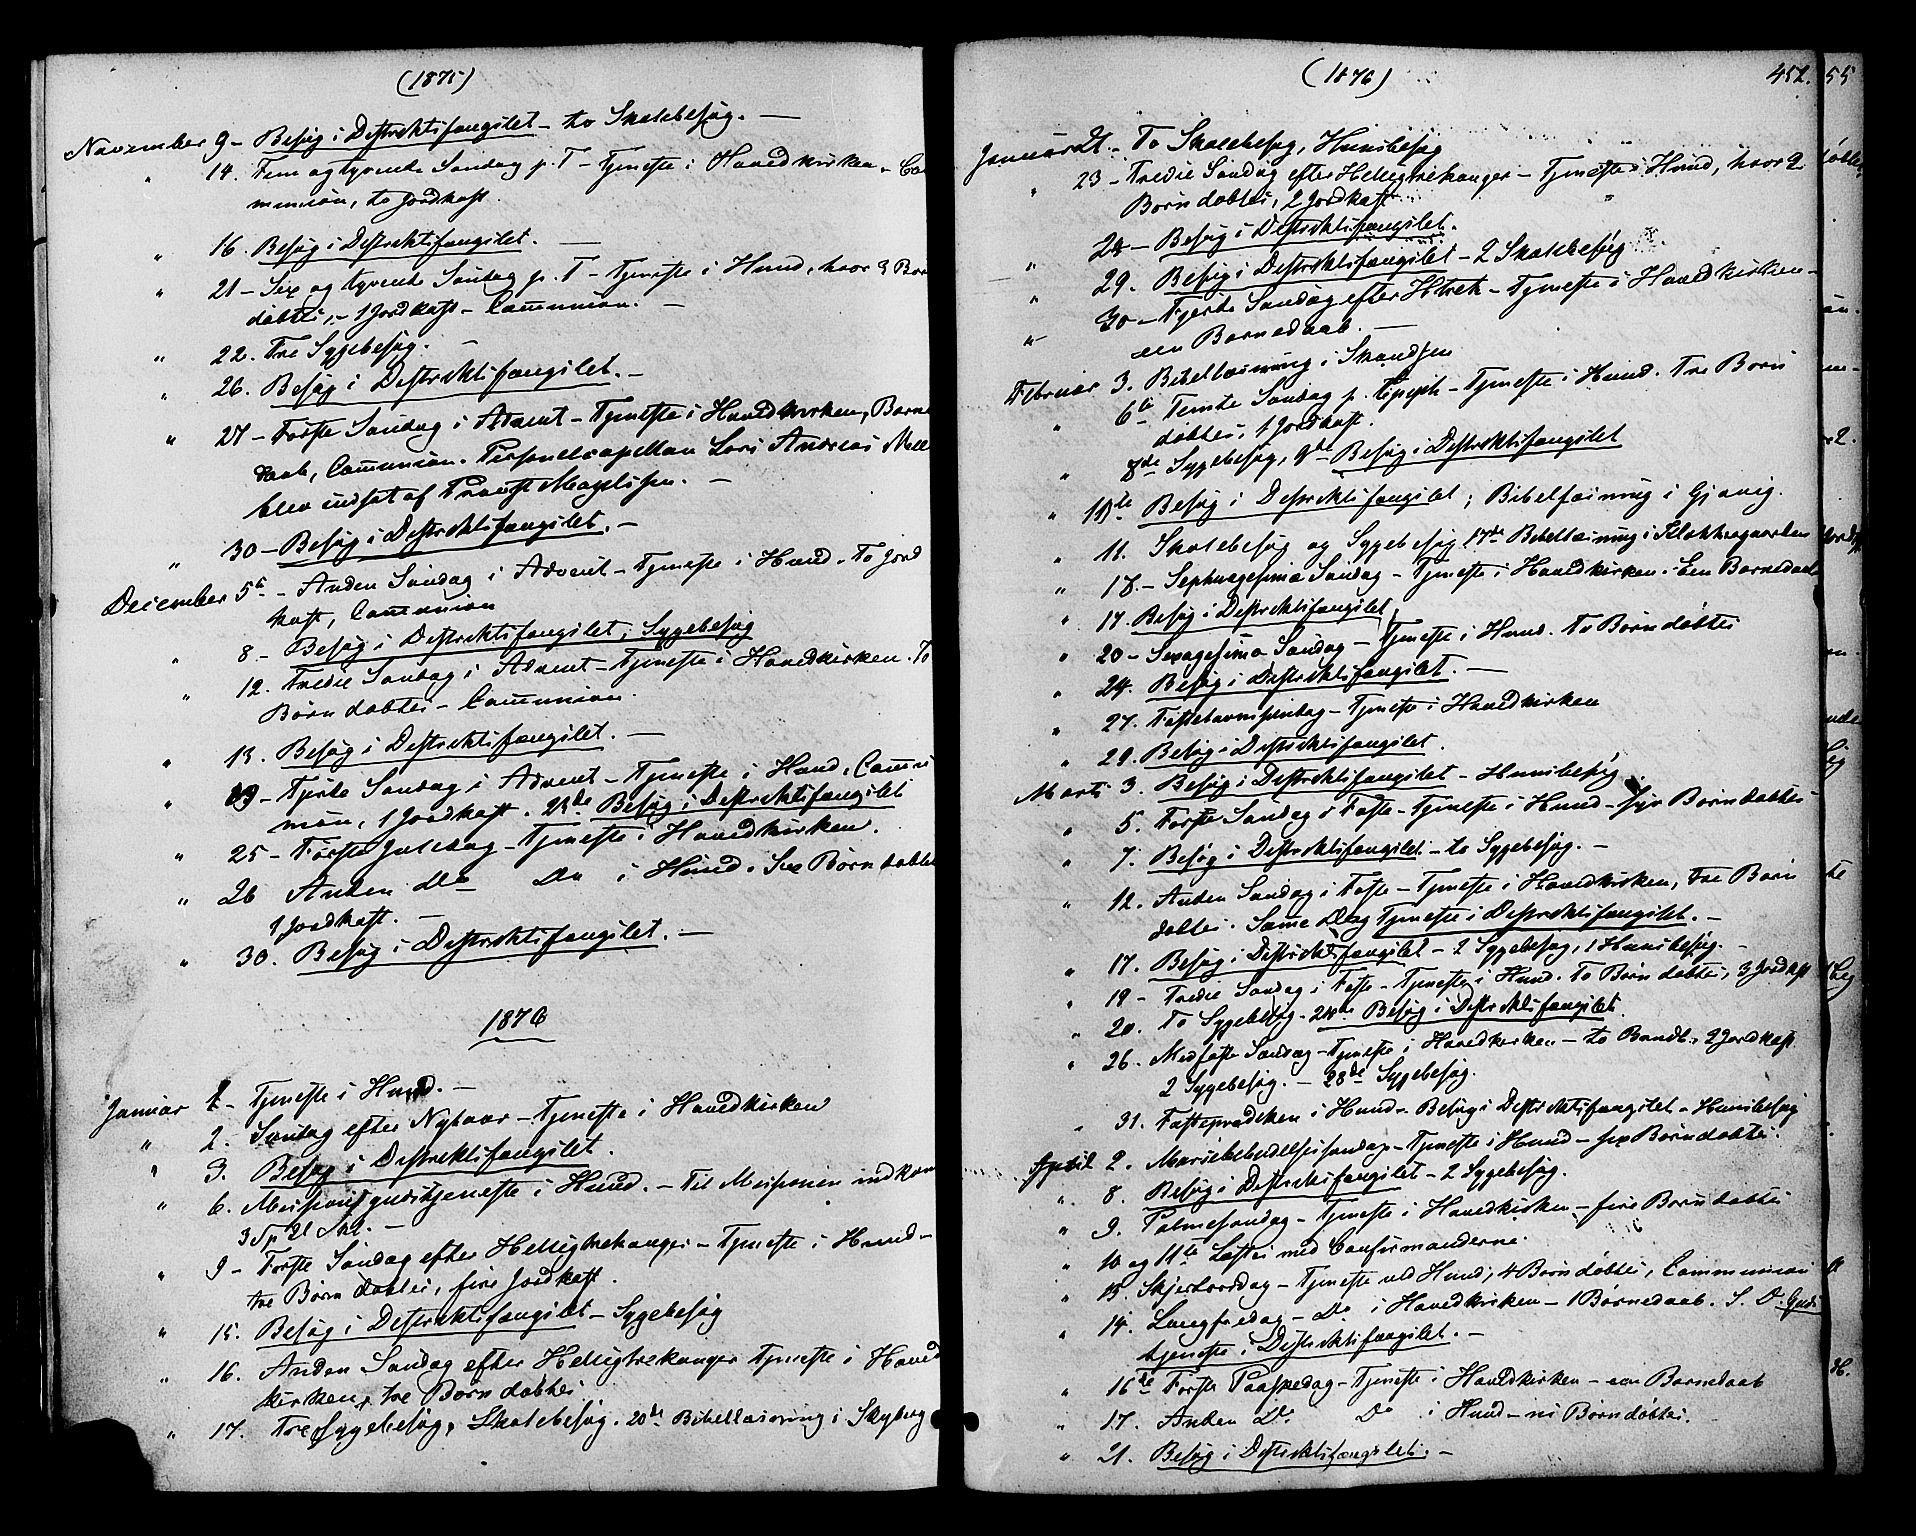 (1875)
November 9 - Besøg i Destriktsfængslet - to Skolebesøg. -
" 14. Fem og tyvende Søndag p. T - Tjeneste i Hovedkirken - Co
munion, to Jordkast.
" 16. Besøg i Destriktsfængslet. -
" 21 - Sex og tyvende Søndag p. T - Tjeneste i Hund, hvor 3 Børn
døbtes, - 1 Jordkast - Communion. -
" 22. Tre Sygebesøg. -
" 26. Besøg i Destriktsfængslet. -
" 27 - Første Søndag i Advent - Tjeneste i Hovedkirken, Barne
daab, Communion. Personelcapellan Andreas
blev indsat af Provst. -
" 30 - Besøg i Destriktsfængslet. -
December 5te - Anden Søndag i Advent - Tjeneste i Hund. To Jord
kast, Communion
" 8 - Besøg i Destriktsfængslet, Sygebesøg
" 12. Tredie Søndag i Advent - Tjeneste i Hovedkirken. To
Børn døbtes - Communion.
" 13. Besøg i Destriktsfængslet. -
" 19 - Fjerde Søndag i Advent - Tjeneste i Hund, Commu
nion, 1 Jordkast. 23de Besøg i Destriktsfængslet
" 25 - Første Juledag - Tjeneste i Hovedkirken.
" 26 Anden Do Do i Hund. Sex Børn døbtes
1 Jordkast. -
" 30. Besøg i Destriktsfængslet. -
1876
Januar 1 - Tjeneste i Hund. -
" 2. Søndag efter Nytaar - Tjeneste i Hovedkirken
" 3. Besøg i Destriktsfængslet.
" 6. Missionsgudstjeneste i Hund. - Til Missionen indkom
3 Sp 21 Skl. -
" 9 - Første Søndag efter Helligtrekonger - Tjeneste i Hund -
tre Børn døbtes, fire Jordkast.
" 15. Besøg i Destriktsfængslet - Sygebesøg
" 16. Anden Søndag efter Helligtrekonger Tjeneste i Hoved
kirken, tre Børn døbtes
" 17. Tre Sygebesøg, Skolebesøg. 20de Bibellæsning i Skyberg
(1876)
452. 55
Januar 21 - To Skolebesøg, Huusbesøg
" 23 - Tredie Søndag efter Helligtrekonger - Tjeneste i Hund, hvor 2
Børn døbtes, 2 Jordkast
" 24 - Besøg i Destriktsfængslet.
" 29. Besøg i Destriktsfængslet - 2 Skolebesøg
" 30 - Fjerde Søndag efter Htrek - Tjeneste i Hovedkirken -
een Barnedaab. -
Februar 3. Bibellæsning i Skandsen
" 6te Femte Søndag p. Epiph - Tjeneste i Hund. Tre Børn
døbtes, 1 Jordkast.
" 8de Sygebesøg, 9de Besøg i Destriktsfængslet
" 10de Besøg i Destriktsfængslet, Bibellæsning i Gjøvig.
" 11. Skolebesøg og Sygebesøg 17de Bibellæsning i Klokkergaarden
" 13 - Septuagesima Søndag - Tjeneste i Hovedkirken. Een Barnedaab
" 17. Besøg i Destriktsfængslet
" 20 - Sexagesima Søndag - Tjeneste i Hund. To Børn døbtes
" 24. Besøg i Destriktsfængslet. -
" 27. Fastelavnssøndag - Tjeneste i Hovedkirken
" 29. Besøg i Destriktsfængslet.
Marts 3. Besøg i Destriktsfængslet - Huusbesøg.
" 5. Første Søndag i Faste - Tjeneste i Hund - syv Børn døbtes
" 7. Besøg i Destriktsfængslet - to Sygebesøg. -
" 12. Anden Søndag i Faste - Tjeneste i Hovedkirken, Tre Børn
døbtes. Samme Dag Tjeneste i Destriktsfængslet. -
" 17. Besøg i Destriktsfængslet - 2 Sygebesøg, 1 Huusbesøg. -
" 19 - Tredie Søndag i Faste - Tjeneste i Hund. To Børn døbtes, 3 Jordkast
" 20. To Sygebesøg - 24de Besøg i Destriktsfængslet.
" 26. Midfaste Søndag - Tjeneste i Hovedkirken - to Barnedb., 2 Jordkast
2 Sygebesøg. - 28de Sygebesøg.
" 31. Fasteprædiken i Hund - Besøg i Destriktsfængslet - Huusbesøg
April 2. Mariæbebudelsessøndag - Tjeneste i Hund - sex Børn døbtes.
" 8. Besøg i Destriktsfængslet - 2 Sygebesøg.
" 9. Palmesøndag - Tjeneste i Hovedkirken - fire Børn døbtes
" 10 og 11te Læstes med Confirmanderne.
" 13. Skjertorsdag - Tjeneste ved Hund, 4 Børn døbtes, Communion
" 14. Langfredag - Do i Hovedkirken - 1 Barnedaab. S. D. Guds
tjeneste i Destriktsfængslet. -
" 16de Første Paaskedag - Tjeneste i Hovedkirken - een Barnedaab
" 17. Anden Do Do i Hund - ni Børn døbtes.
" 21. Besøg i Destriktsfængslet. -